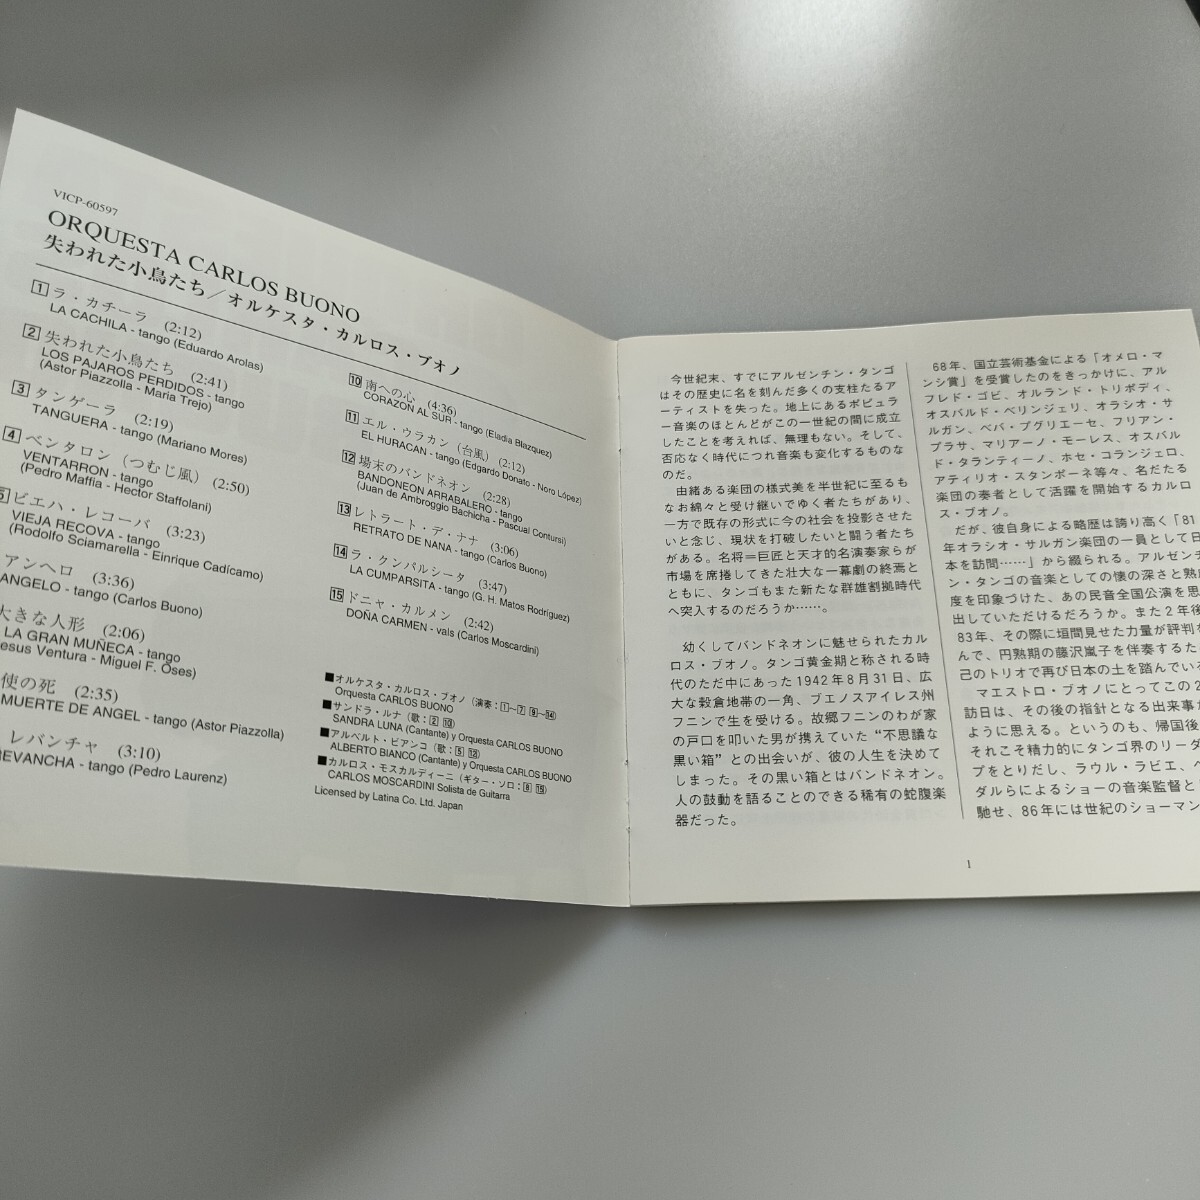 VICP-60597
ORQUESTA CARLOS BUONO
失われた小鳥たち／オルケスタ・カルロス・ブオノ
1 ラ・カチーラ (2:12)
LA CACHILA - tango (Eduardo Arolas)
2 失われた小鳥たち (2:41)
LOS PAJAROS PERDIDOS - tango
(Astor Piazzolla - Maria Trejo)
3 タンゲーラ (2:19)
TANGUERA - tango (Mariano Mores)
4 ベンタロン（つむじ風） (2:50)
VENTARRON - tango
(Pedro Maffia - Hector Staffolani)
5 ビエハ・レコーバ (3:23)
VIEJA RECOVA - tango
(Rodolfo Sciamarella - Einrique Cadícamo)
アンヘロ (3:36)
ANGELO - tango (Carlos Buono)
大きな人形 (2:06)
LA GRAN MUÑECA - tango
esus Ventura - Miguel F. Oses)
使の死 (2:35)
MUERTE DE ANGEL - tango (Astor Piazzolla)
レバンチャ (3:10)
REVANCHA - tango (Pedro Laurenz)
10 南への心 (4:36)
CORAZON AL SUR - tango (Eladia Blazquez)
11 エル・ウラカン（台風） (2:12)
EL HURACAN - tango (Edgardo Donato - Noro López)
12 場末のバンドネオン (2:28)
BANDONEON ARRABALERO - tango
(Juan de Ambroggio Bachicha - Pascual Contursi)
13 レトラート・デ・ナナ (3:06)
RETRATO DE NANA - tango (Carlos Buono)
14 ラ・クンパルシータ (3:47)
LA CUMPARSITA - tango (G. H. Matos Rodríguez)
15 ドニャ・カルメン (2:42)
DOÑA CARMEN - vals (Carlos Moscardini)
■オルケスタ・カルロス・ブオノ（演奏：1〜7 9〜14）
Orquesta CARLOS BUONO
■サンドラ・ルナ（歌：2 10）
SANDRA LUNA (Cantante) y Orquesta CARLOS BUONO
■アルベルト・ビアンコ（歌：5 12）
ALBERTO BIANCO (Cantante) y Orquesta CARLOS BUONO
■カルロス・モスカルディーニ（ギター・ソロ：8 15）
CARLOS MOSCARDINI Solista de Guitarra
Licensed by Latina Co. Ltd. Japan
今世紀末、すでにアルゼンチン・タンゴ
はその歴史に名を刻んだ多くの支柱たるア
ーティストを失った。地上にあるポピュラ
ー音楽のほとんどがこの一世紀の間に成立
したことを考えれば、無理もない。そして、
否応なく時代につれ音楽も変化するものな
のだ。
由緒ある楽団の様式美を半世紀に至るも
なお綿々と受け継いでゆく者たちがあり、
一方で既存の形式に今の社会を投影させた
いと念じ、現状を打破したいと闘う者たち
がある。名将＝巨匠と天才的名演奏家らが
市場を席捲してきた壮大な一幕劇の終焉と
ともに、タンゴもまた新たな群雄割拠時代
へ突入するのだろうか……。
幼くしてバンドネオンに魅せられたカル
ロス・ブオノ。タンゴ黄金期と称される時
代のただ中にあった1942年8月31日、広
大な穀倉地帯の一角、ブエノスアイレス州
フニンで生を受ける。故郷フニンのわが家
の戸口を叩いた男が携えていた“不思議な
黒い箱”との出会いが、彼の人生を決めて
しまった。その黒い箱とはバンドネオン。
人の鼓動を語ることのできる稀有の蛇腹楽
器だった。
68年、国立芸術基金による「オメロ・マ
ンシ賞」を受賞したのをきっかけに、アル
フレド・ゴビ、オルランド・トリポディ、
オスバルド・ベリンジェリ、オラシオ・サ
ルガン、ベバ・プグリエーセ、フリアン・
プラサ、マリアーノ・モーレス、オスバル
ド・タランティーノ、ホセ・コランジェロ、
アティリオ・スタンポーネ等々、名だたる
楽団の奏者として活躍を開始するカルロ
ス・ブオノ。
だが、彼自身による略歴は誇り高く「81
年オラシオ・サルガン楽団の一員として日
本を訪問……」から綴られる。アルゼンチ
ン・タンゴの音楽としての懐の深さと熟
度を印象づけた、あの民音全国公演を思
出していただけるだろうか。また2年後
83年、その際に垣間見せた力量が評判
んで、円熟期の藤沢嵐子を伴奏するた
己のトリオで再び日本の土を踏んでいる
マエストロ・ブオノにとってこの2
訪日は、その後の指針となる出来事
ように思える。というのも、帰国後
それこそ精力的にタンゴ界のリーダ
プをとりだし、ラウル・ラビエ、
ダルらによるショーの音楽監督と
馳せ、86年には世紀のショーマン
1